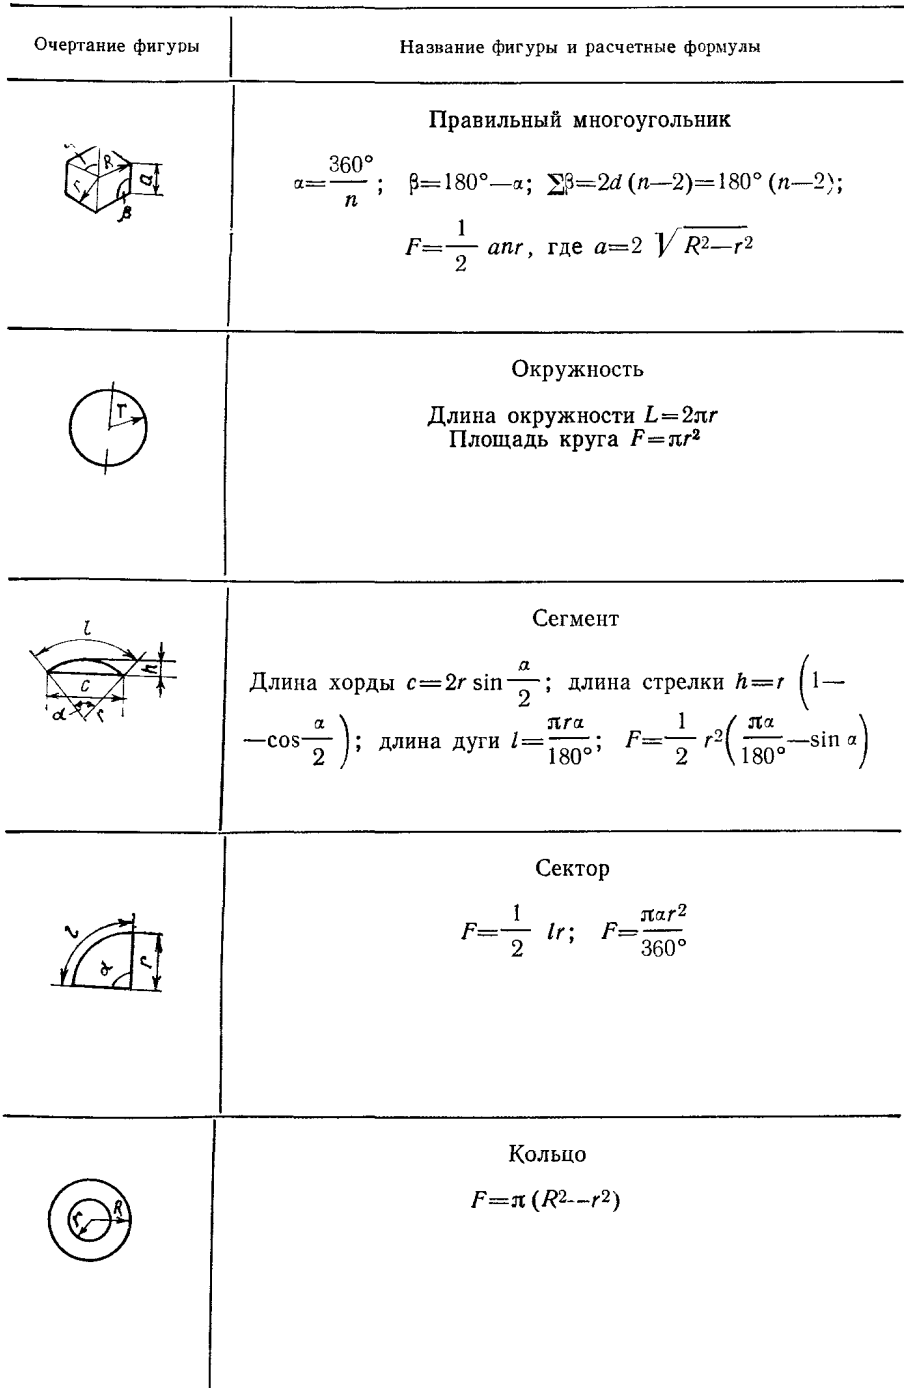 Очертание фигуры
Название фигуры и расчетные формулы
Правильный многоугольник
α=360°/n; β=180°—α; ∑β=2d (n—2)=180° (n—2);
F=1/2 anr, где a=2 √R²—r²
r R a β
Окружность
Длина окружности L=2πr
Площадь круга F=πr²
r
Сегмент
Длина хорды c=2r sin α/2; длина стрелки h=r (1—
—cos α/2); длина дуги l=πrα/180°; F=1/2 r²(πα/180°—sin α)
l h c α r
Сектор
F=1/2 lr; F=παr²/360°
l r α
Кольцо
F=π (R²—r²)
r R